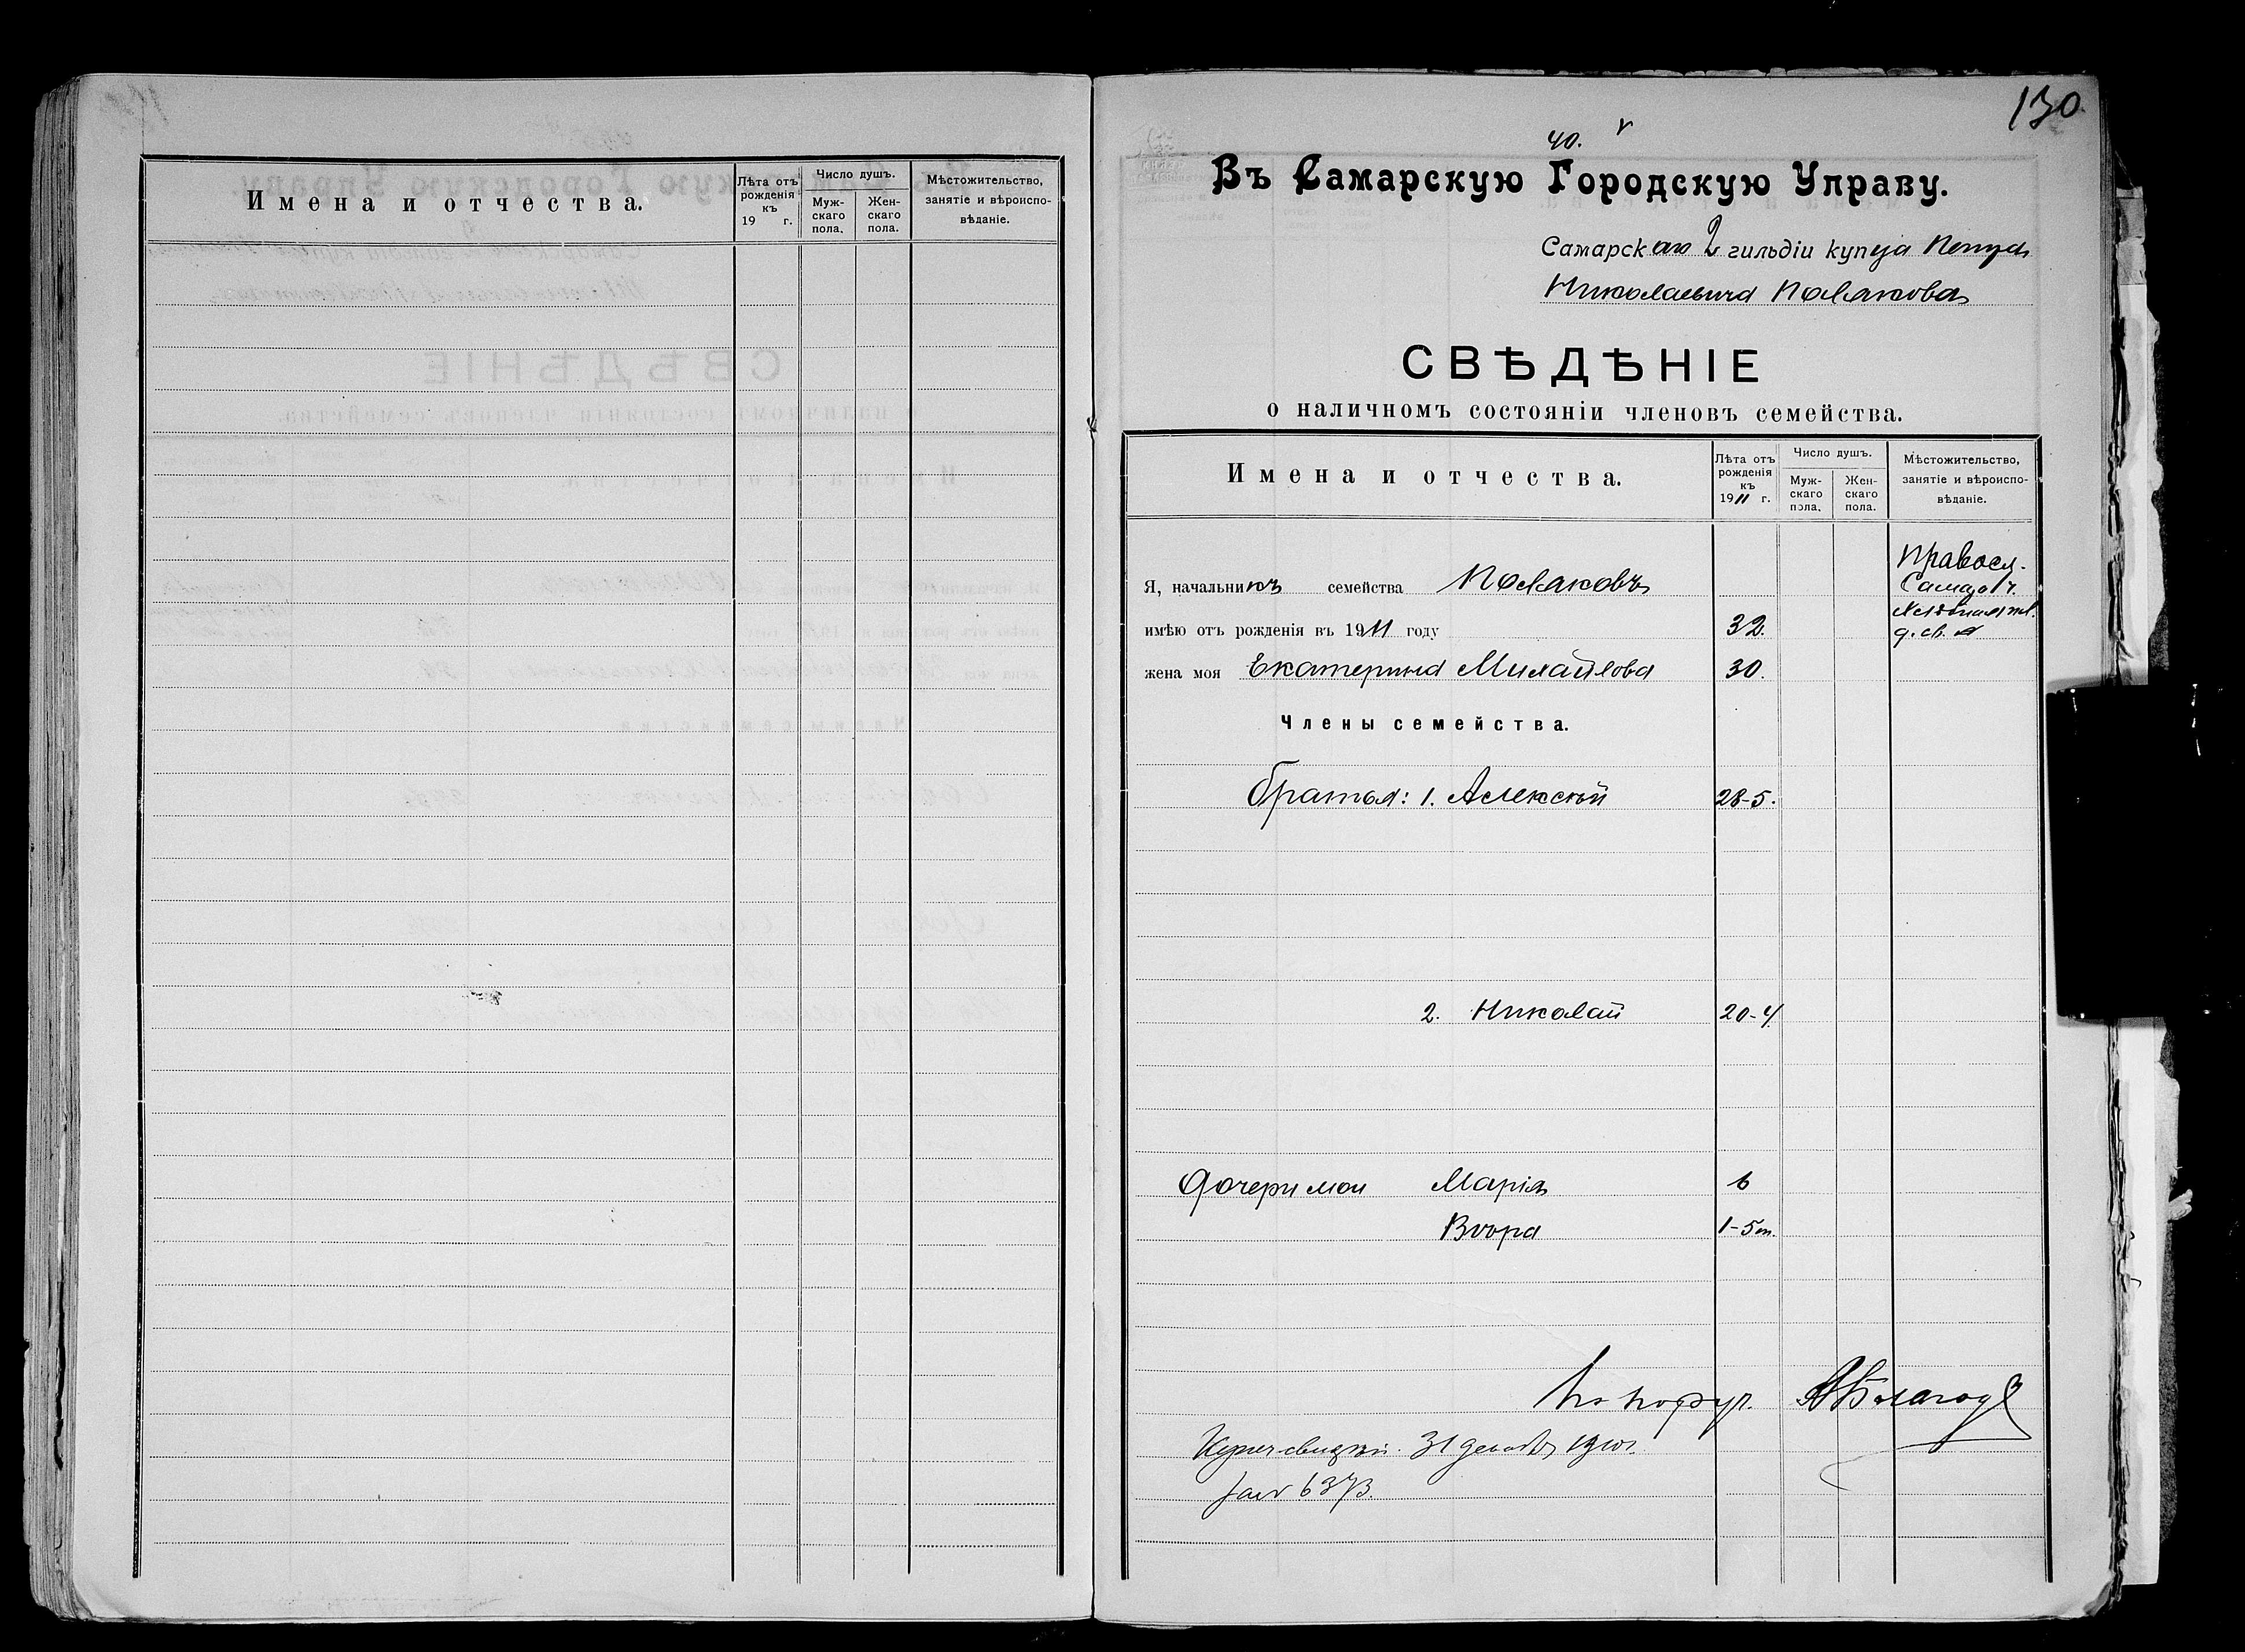 Имена и отчества.
Лѣта отъ рожденія къ 19 г.
Число душъ.
Муж-скаго пола.
Жен-скаго пола.
Мѣстожительство, занятіе и вѣроиспо-вѣданіе.
130
40.
Въ Самарскую Городскую Управу.
Самарскаго 2 гильдіи купца Петра
Николаевича Полякова
СВѢДѢНІЕ
о наличномъ состояніи членовъ семейства.
Имена и отчества.
Лѣта отъ рожденія къ 1911 г.
Число душъ.
Муж-скаго пола.
Жен-скаго пола.
Мѣстожительство, занятіе и вѣроиспо-вѣданіе.
Правосл.
Я, начальникъ семейства Поляковъ
имѣю отъ рожденія въ 1911 году 32.
д. св.
жена моя Екатерина Михайлова 30.
Члены семейства.
братья: 1. Алексѣй 28-5.
2. Николай 20-4
Дочери мои Марія 6
Вѣра 1-5 м.
31 декабря 1910 г.
6373.